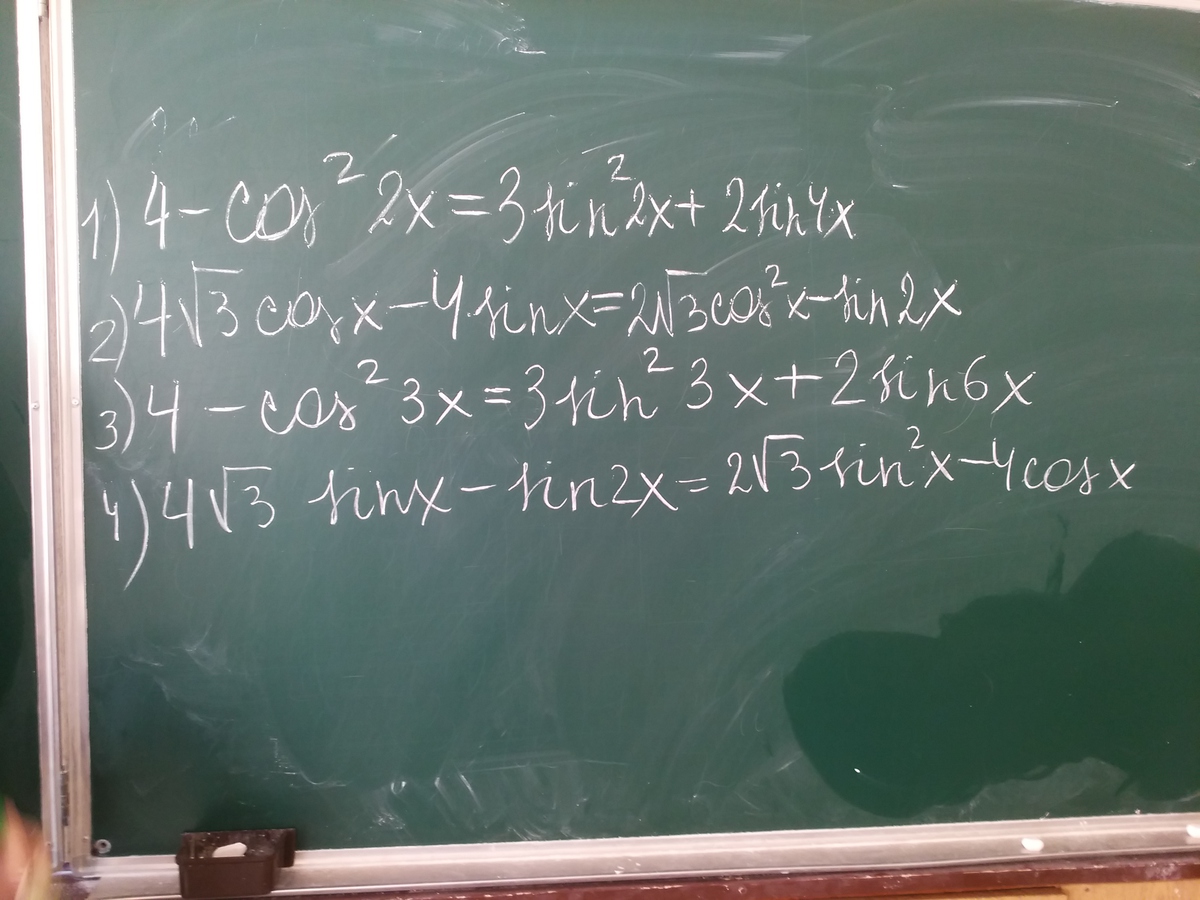 1) 4 - cos² 2x = 3 sin² 2x + 2 sin 4x
2) 4√3 cos x - 4 sin x = 2√3 cos² x - sin 2x
3) 4 - cos² 3x = 3 sin² 3x + 2 sin 6x
4) 4√3 sin x - sin 2x = 2√3 sin² x - 4 cos x